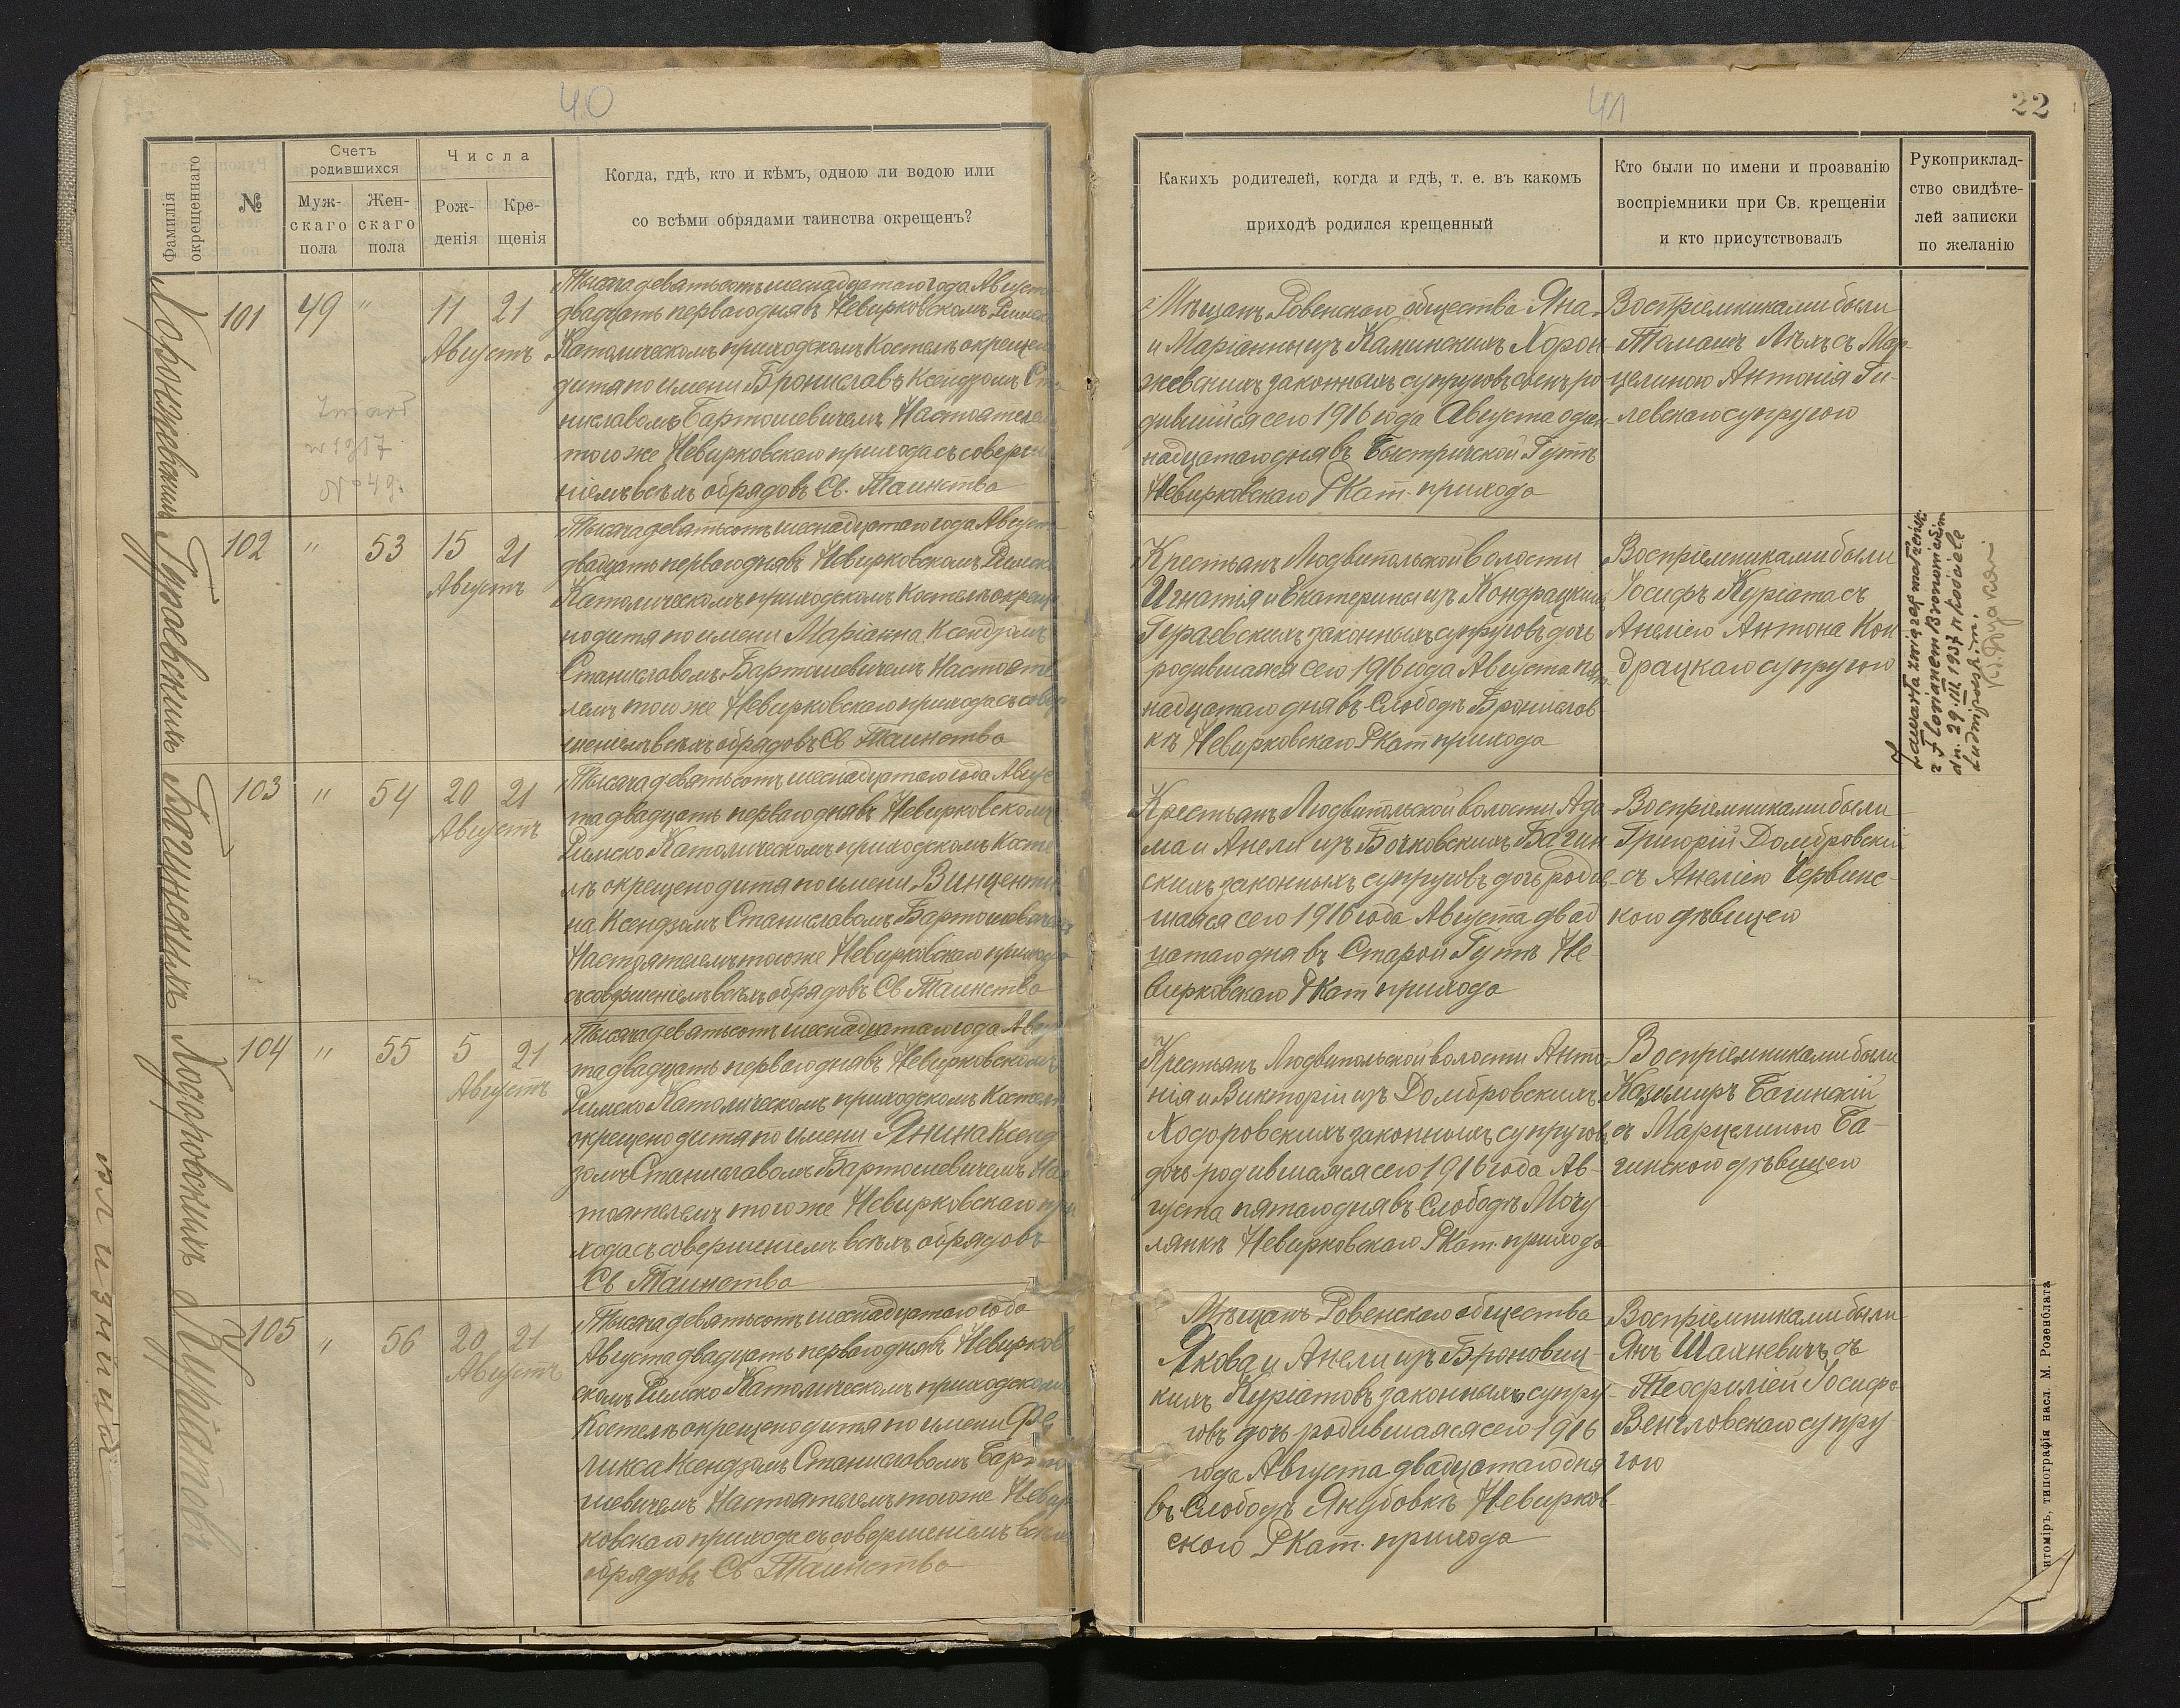 40
Фамилія
окрещеннаго
№
Счетъ
родившихся
Муж-
скаго
пола
Жен-
скаго
пола
Числа
Рож-
денія
Кре-
щенія
Когда, гдѣ, кто и кѣмъ, одною ли водою или
со всѣми обрядами таинства окрещенъ?
Хоронжевскихъ
101
49
"
11
21
Августъ
Zmarł
w 1917
№ 49.
Тысяча девятьсотъ шеснадцатаго года Августа
двадцать перваго дня въ Невирковскомъ Римско
Католическомъ приходскомъ Костелѣ окрещено
дитя по имени Брониславъ Ксендзомъ Ста
ниславомъ Бартошевичемъ Настоятелемъ
того же Невирковскаго прихода съ соверше
ніемъ всѣхъ обрядовъ Св. Таинства
Гураевскихъ
102
"
53
15
21
Августъ
Тысяча девятьсотъ шеснадцатаго года Августа
двадцать перваго дня въ Невирковскомъ Римско
Католическомъ приходскомъ Костелѣ окреще
но дитя по имени Маріанна Ксендзомъ
Станиславомъ Бартошевичемъ Настояте
лемъ того же Невирковскаго прихода съ совер
шеніемъ всѣхъ обрядовъ Св Таинства
Багинскихъ
103
"
54
20
21
Августъ
Тысяча девятьсотъ шеснадцатаго года Авгус
та двадцать перваго дня въ Невирковскомъ
Римско Католическомъ приходскомъ Косте
лѣ окрещено дитя по имени Винценти
на Ксендзомъ Станиславомъ Бартошевичемъ
Настоятелемъ того же Невирковскаго прихода
съ совершеніемъ всѣхъ обрядовъ Св Таинства
Ходоровскихъ
104
"
55
5
21
Августъ
Тысяча девятьсотъ шеснадцатаго года Авгус
та двадцать перваго дня въ Невирковскомъ
Римско Католическомъ приходскомъ Костелѣ
окрещено дитя по имени Янина Ксенд
зомъ Станиславомъ Бартошевичемъ Нас
тоятелемъ того же Невирковскаго при
хода съ совершеніемъ всѣхъ обрядовъ
Св Таинства
Куріатовъ
105
"
56
20
21
Августъ
Тысяча девятьсотъ шеснадцатаго года
Августа двадцать перваго дня въ Невирков
скомъ Римско Католическомъ приходскомъ
Костелѣ окрещено дитя по имени Фе
ликса Ксендзомъ Станиславомъ Барто
шевичемъ Настоятелемъ того же Невир
ковскаго прихода съ совершеніемъ всѣхъ
обрядовъ Св Таинства
41
22
Какихъ родителей, когда и гдѣ, т. е. въ какомъ
приходѣ родился крещенный
Кто были по имени и прозванію
воспріемники при Св. крещеніи
и кто присутствовалъ
Рукоприклад-
ство свидѣте-
лей записки
по желанію
Мѣщанъ Ровенскаго общества Яна
и Маріанны изъ Каминскихъ Хорон
жевскихъ законныхъ супруговъ сынъ ро
дившійся сего 1916 года Августа один
надцатаго дня въ Быстричской Гутѣ
Невирковскаго РКат. прихода
Воспріемниками были
Томашъ Лѣхъ съ Мар-
целиною Антонія Ги-
левскаго супругою
Крестьянъ Людвипольской волости
Игнатія и Екатерины изъ Кондрацкихъ
Гураевскихъ законныхъ супруговъ дочь
родившаяся сего 1916 года Августа пят
надцатаго дня въ Слободѣ Бронислов
кѣ Невирковскаго РКат прихода
Воспріемниками были
Іосифъ Куріата съ
Анеліею Антона Кон
драцкаго супругою
Zawarła związek małżeński
z Florianem Bronowickim
dn. 29.III.1937 r. kościele
Ludwipolskim.
Крестьянъ Людвипольской волости Ада
ма и Анели изъ Бочковскихъ Багин
скихъ законныхъ супруговъ дочь родив
шаяся сего 1916 года Августа двад
цатаго дня въ Старой Гутѣ Не
вирковскаго РКат прихода
Воспріемниками были
Григорій Домбровскій
съ Анеліею Червинс-
кою дѣвицею
Крестьянъ Людвипольской волости Анто
нія и Викторіи изъ Домбровскихъ
Ходоровскихъ законныхъ супруговъ
дочь родившаяся сего 1916 года Ав-
густа пятаго дня въ Слободѣ Мочу
лянкѣ Невирковскаго РКат. прихода
Воспріемниками были
Казимиръ Багинскій
съ Марцелиною Ба-
гинскою дѣвицею
Мѣщанъ Ровенскаго общества
Якова и Анели изъ Броновиц-
кихъ Куріатовъ законныхъ супру-
говъ дочь родившаяся сего 1916
года Августа двадцатаго дня
въ Слободѣ Якубовкѣ Невирков-
скаго РКат. прихода
Воспріемниками были
Янъ Шахневичъ съ
Теофиліей Іосифа
Венгловскаго супру
гою
итоміръ, типографія насл. М. Розенблата